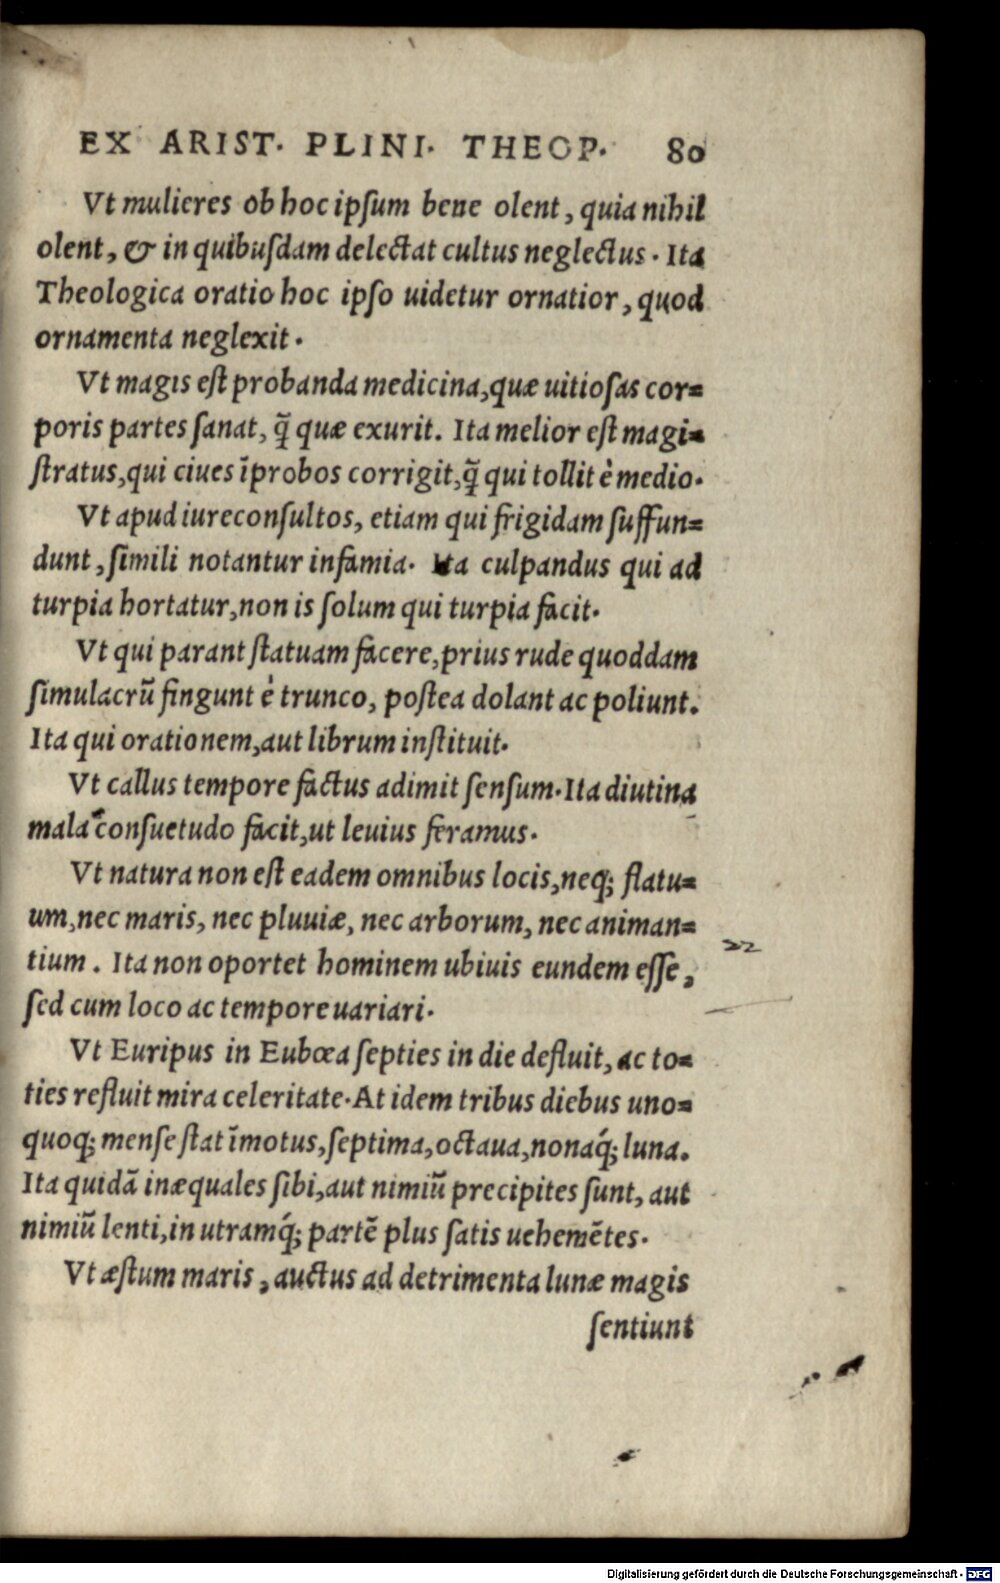 EX ARIST. PLINI. THEOP. 80
Vt mulieres ob hoc ipſum bene olent, quia nihil
olent, & in quibuſdam delectat cultus neglectus. Ita
Theologica oratio hoc ipſo uidetur ornatior, quod
ornamenta neglexit.
Vt magis eſt probanda medicina, quæ uitioſas cor=
poris partes ſanat, q̃ quæ exurit. Ita melior eſt magi=
ſtratus, qui ciues īprobos corrigit, q̃ qui tollit è medio.
Vt apud iureconſultos, etiam qui frigidam ſuffun=
dunt, ſimili notantur infamia. Ita culpandus qui ad
turpia hortatur, non is ſolum qui turpia facit.
Vt qui parant ſtatuam facere, prius rude quoddam
ſimulacrū fingunt è trunco, poſtea dolant ac poliunt.
Ita qui orationem, aut librum inſtituit.
Vt callus tempore factus adimit ſenſum. Ita diutina
mala conſuetudo facit, ut leuius feramus.
Vt natura non eſt eadem omnibus locis, neq; flatu=
um, nec maris, nec pluuiæ, nec arborum, nec animan=
tium. Ita non oportet hominem ubiuis eundem eſſe,
ſed cum loco ac tempore uariari.
Vt Euripus in Eubœa ſepties in die defluit, ac to=
ties refluit mira celeritate. At idem tribus diebus uno=
quoq; menſe ſtat īmotus, ſeptima, octaua, nonaq́; luna.
Ita quidã inæquales ſibi, aut nimiū precipites ſunt, aut
nimiū lenti, in utramq́; partē plus ſatis uehemētes.
Vt æſtum maris, auctus ad detrimenta lunæ magis
ſentiunt
Digitalisierung gefördert durch die Deutsche Forschungsgemeinschaft - DFG